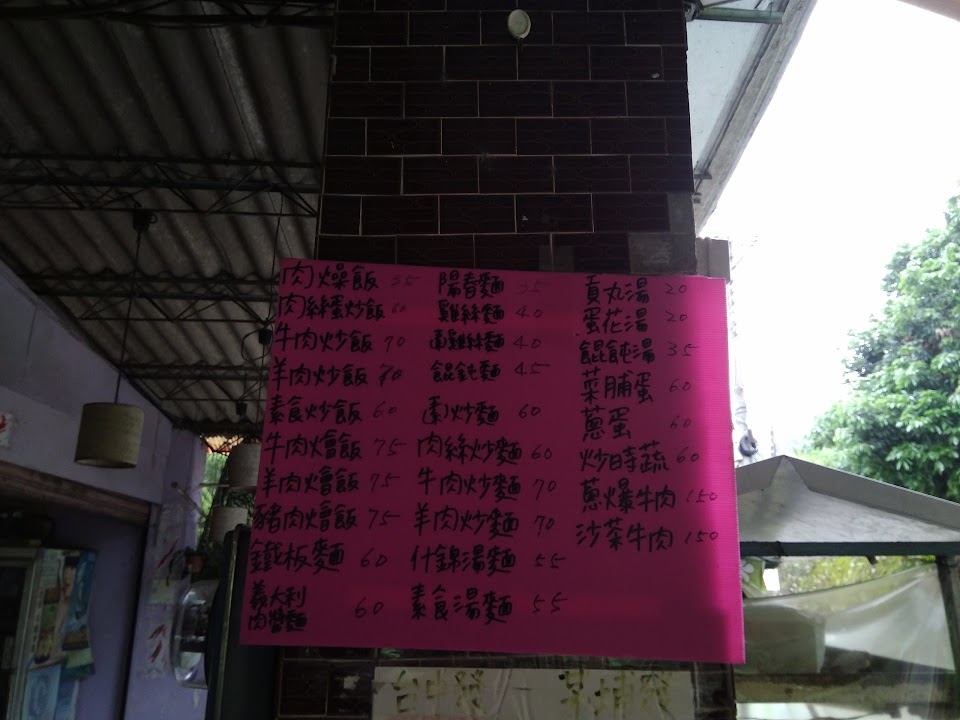 肉燥飯 35
肉絲蛋炒飯 60
牛肉炒飯 70
羊肉炒飯 70
素食炒飯 60
牛肉燴飯 75
羊肉燴飯 75
豬肉燴飯 75
鐵板麵 60
義大利
肉醬麵 60
陽春麵 35
雞絲麵 40
素雞絲麵 40
餛飩麵 45
素炒麵 60
肉絲炒麵 60
牛肉炒麵 70
羊肉炒麵 70
什錦湯麵 55
素食湯麵 55
貢丸湯 20
蛋花湯 20
餛飩湯 35
菜脯蛋 60
蔥蛋 60
炒時蔬 60
蔥爆牛肉 150
沙茶牛肉 150